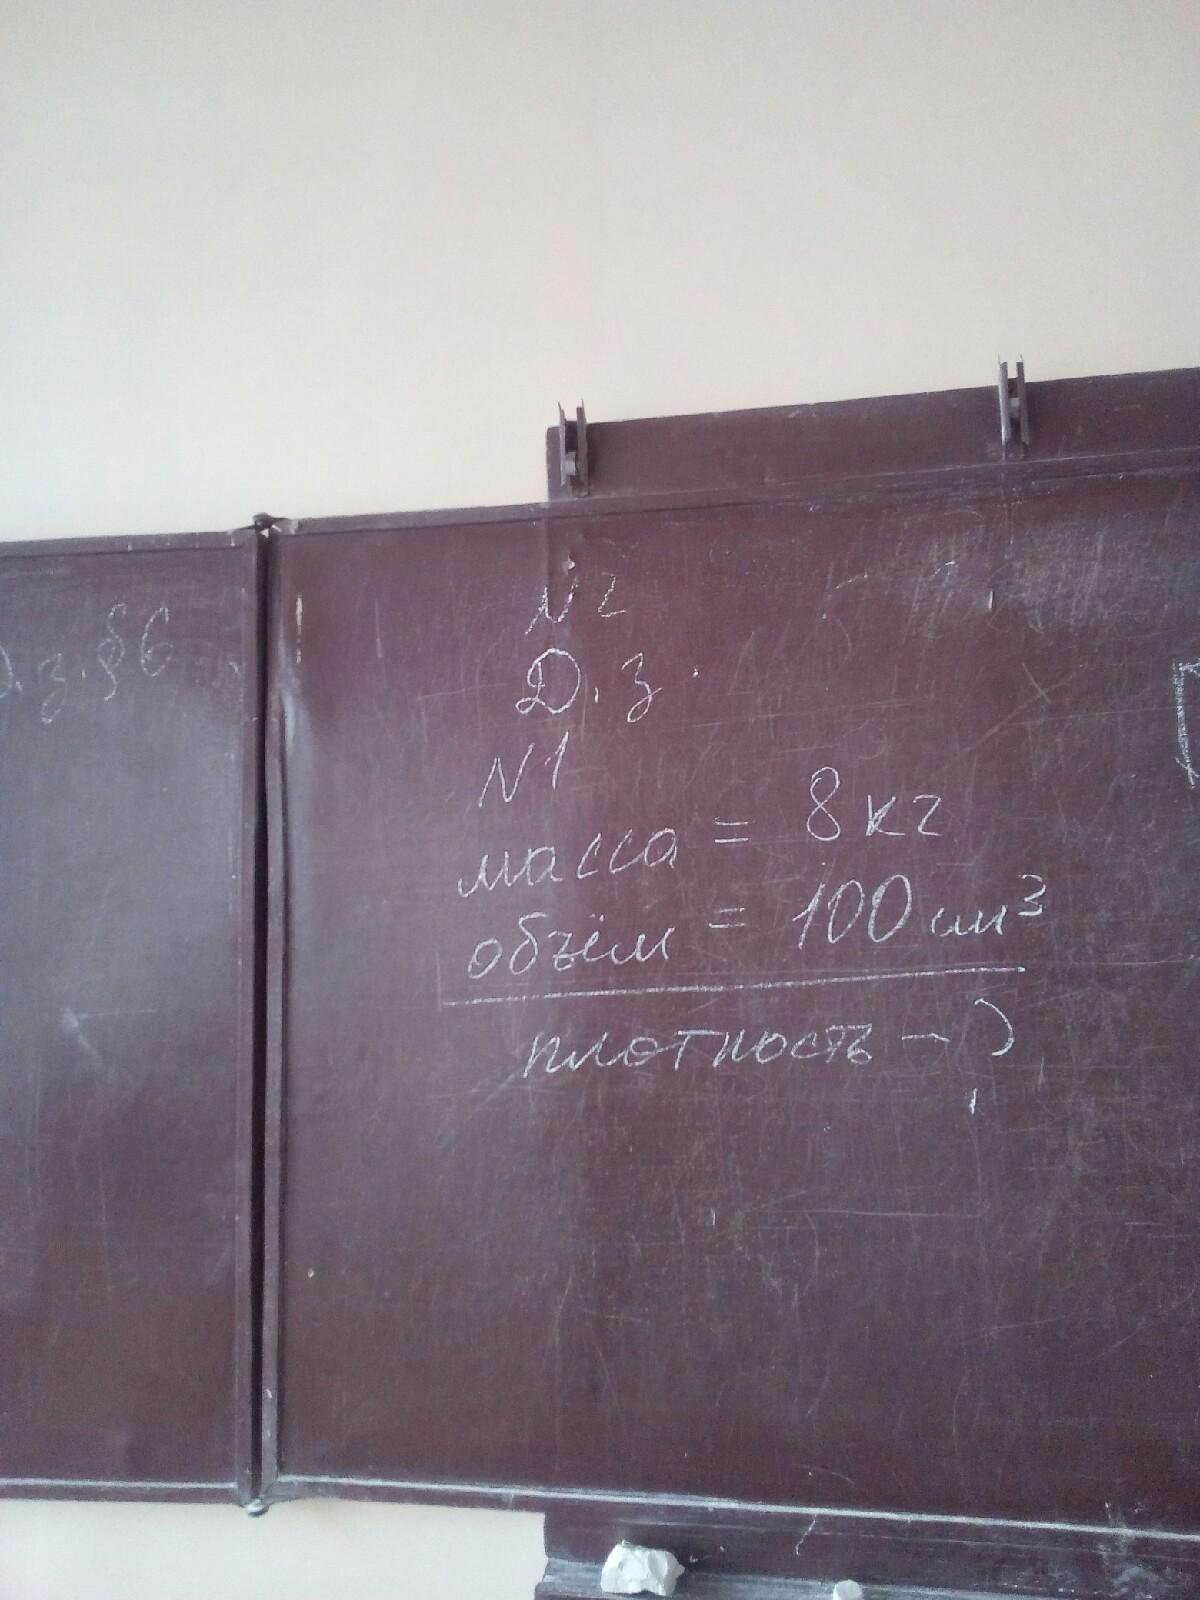 Д.з. §6
N2
Д.з.
N1
масса = 8 кг
объём = 100 см³
плотность - ?